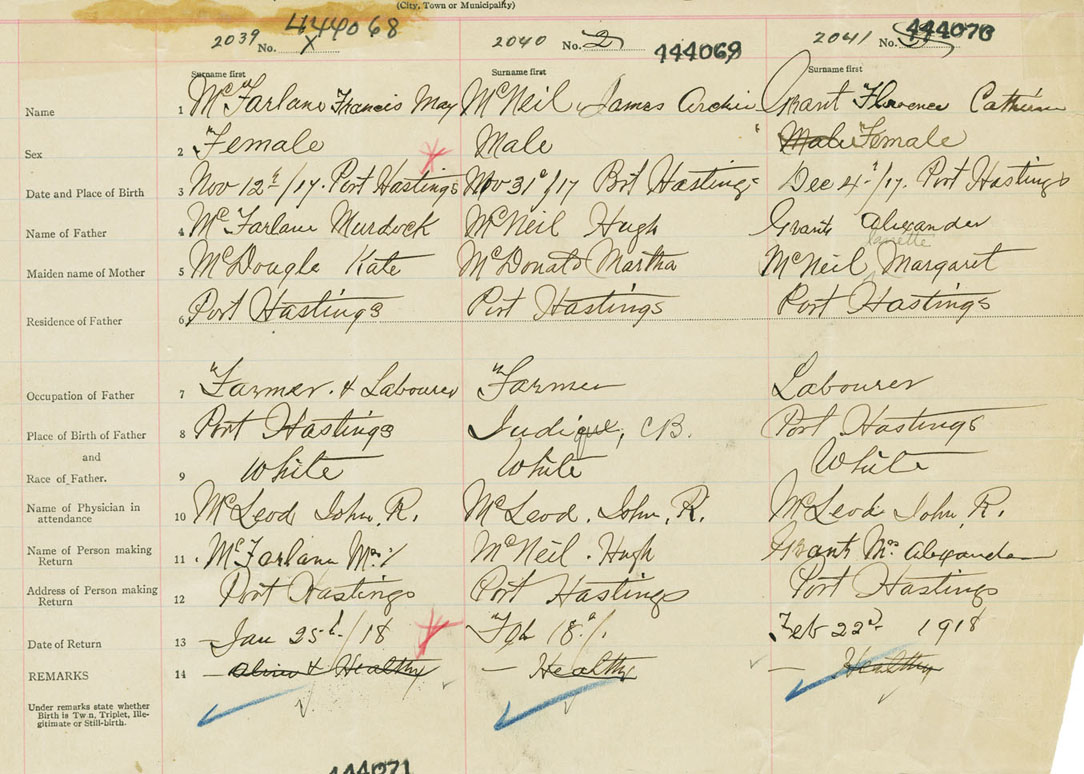 (City, Town or Municipality)
2039 No. X 444068 2040 No. 2 444069 2041 No. 3 444070
Surname first Surname first Surname first
Name 1 McFarlane Francis May McNeil James Archie Grant Florence Catherine
Sex 2 Female Male Male Female
Date and Place of Birth 3 Nov 12th/17. Port Hastings Nov 31st/17 Port Hastings Dec 4th/17. Port Hastings
Name of Father 4 McFarlane Murdock McNeil Hugh Grant Alexander
Maiden name of Mother 5 McDougle Kate McDonald Martha McNeil Margaret
Residence of Father 6 Port Hastings Port Hastings Port Hastings
Occupation of Father 7 Farmer & Labourer Farmer Labourer
Place of Birth of Father 8 Port Hastings Judique, C.B. Port Hastings
and
Race of Father. 9 White White White
Name of Physician in
attendance 10 McLeod John, R. McLeod, John, R. McLeod John, R.
Name of Person making
Return 11 McFarlane Mrs McNeil Hugh Grant Mrs Alexander
Address of Person making
Return 12 Port Hastings Port Hastings Port Hastings
Date of Return 13 Jan 25th/18 Feb 18th/. Feb 22nd 1918
REMARKS 14 – Alive & Healthy – Healthy – Healthy
Under remarks state whether
Birth is Twin, Triplet, Ille-
gitimate or Still-birth.
444071